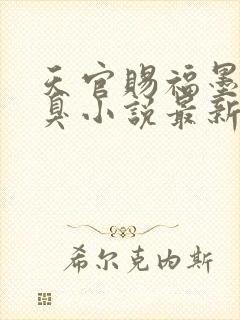 天官賜福墨
臭小説最新
希尔克内斯